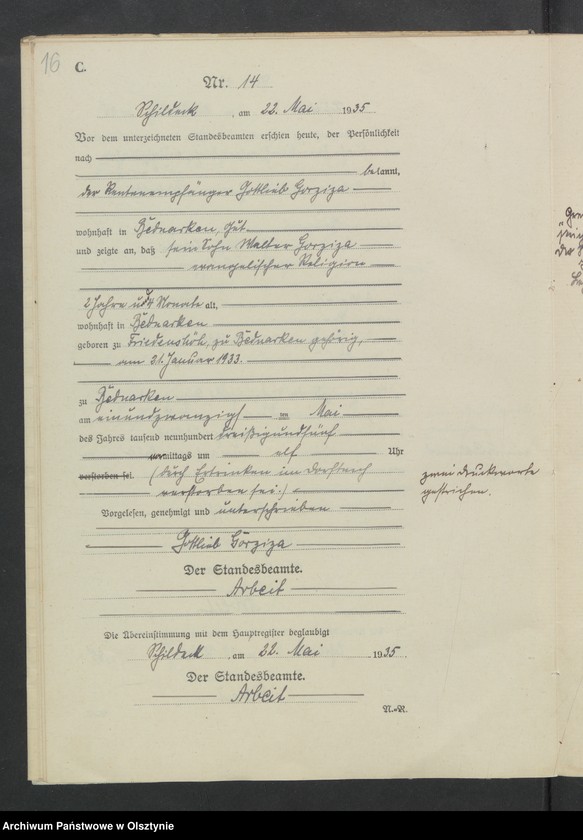 16
C.
Nr. 14
Schildeck, am 22. Mai 1935
Vor dem unterzeichneten Standesbeamten erschien heute, der Persönlichkeit
nach
bekannt,
der Rentenempfänger Gottlieb Gorziza
wohnhaft in Bednarken, Gut
und zeigte an, daß sein Sohn Walter Gorziza
evangelischer Religion
2 Jahre und 4 Monate alt,
wohnhaft in Bednarken
geboren zu Friedenshöh, zu Bednarken gehörig,
am 21. Januar 1933.
zu Bednarken
am einundzwanzigsten Mai
des Jahres tausend neunhundert dreißigundfünf
vormittags um elf Uhr
verstorben sei. (durch Ertrinken im Dorfteich
verstorben sei.)
Vorgelesen, genehmigt und unterschrieben
Gottlieb Gorziza
Der Standesbeamte.
Arbeit
Die Übereinstimmung mit dem Hauptregister beglaubigt
Schildeck, am 22. Mai 1935
Der Standesbeamte.
Arbeit
zwei Druckworte
gestrichen.
Archiwum Państwowe w Olsztynie